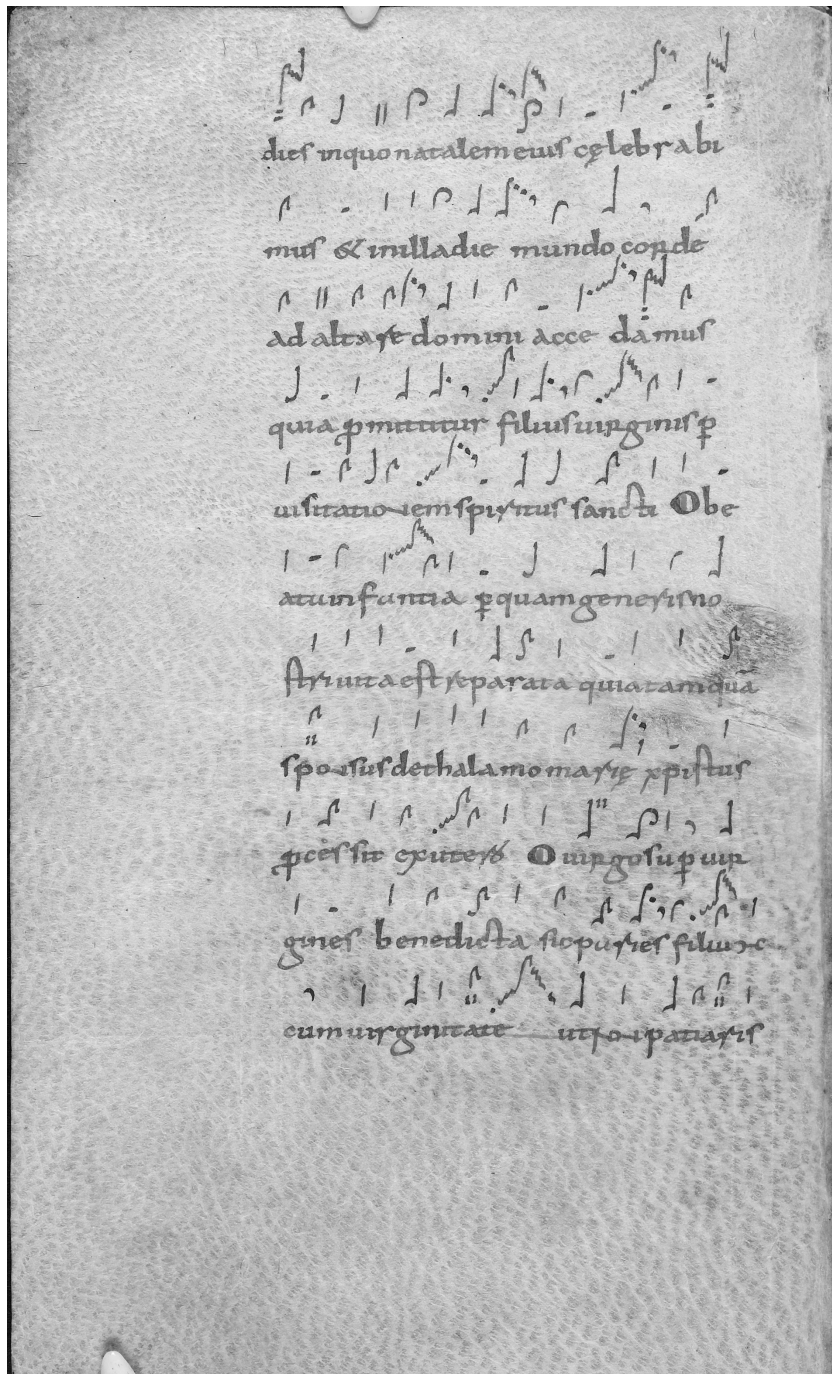 dies inquo natalem eius cęlebrabi
mus & inilladie mundo corde
ad altare domini acce damus
quia p̄mittitur filius uirginis ꝑ
uisitationem spiritus sancti O be
atu infantia ꝑquam generis no
stri uita est reparata quia tamquā
sponsus de thalamo marię xp̄istus
ꝓcessit exutero O uirgo suꝑ uir
gines benedicta sic paries filium
cum uirginitate ut non patiaris